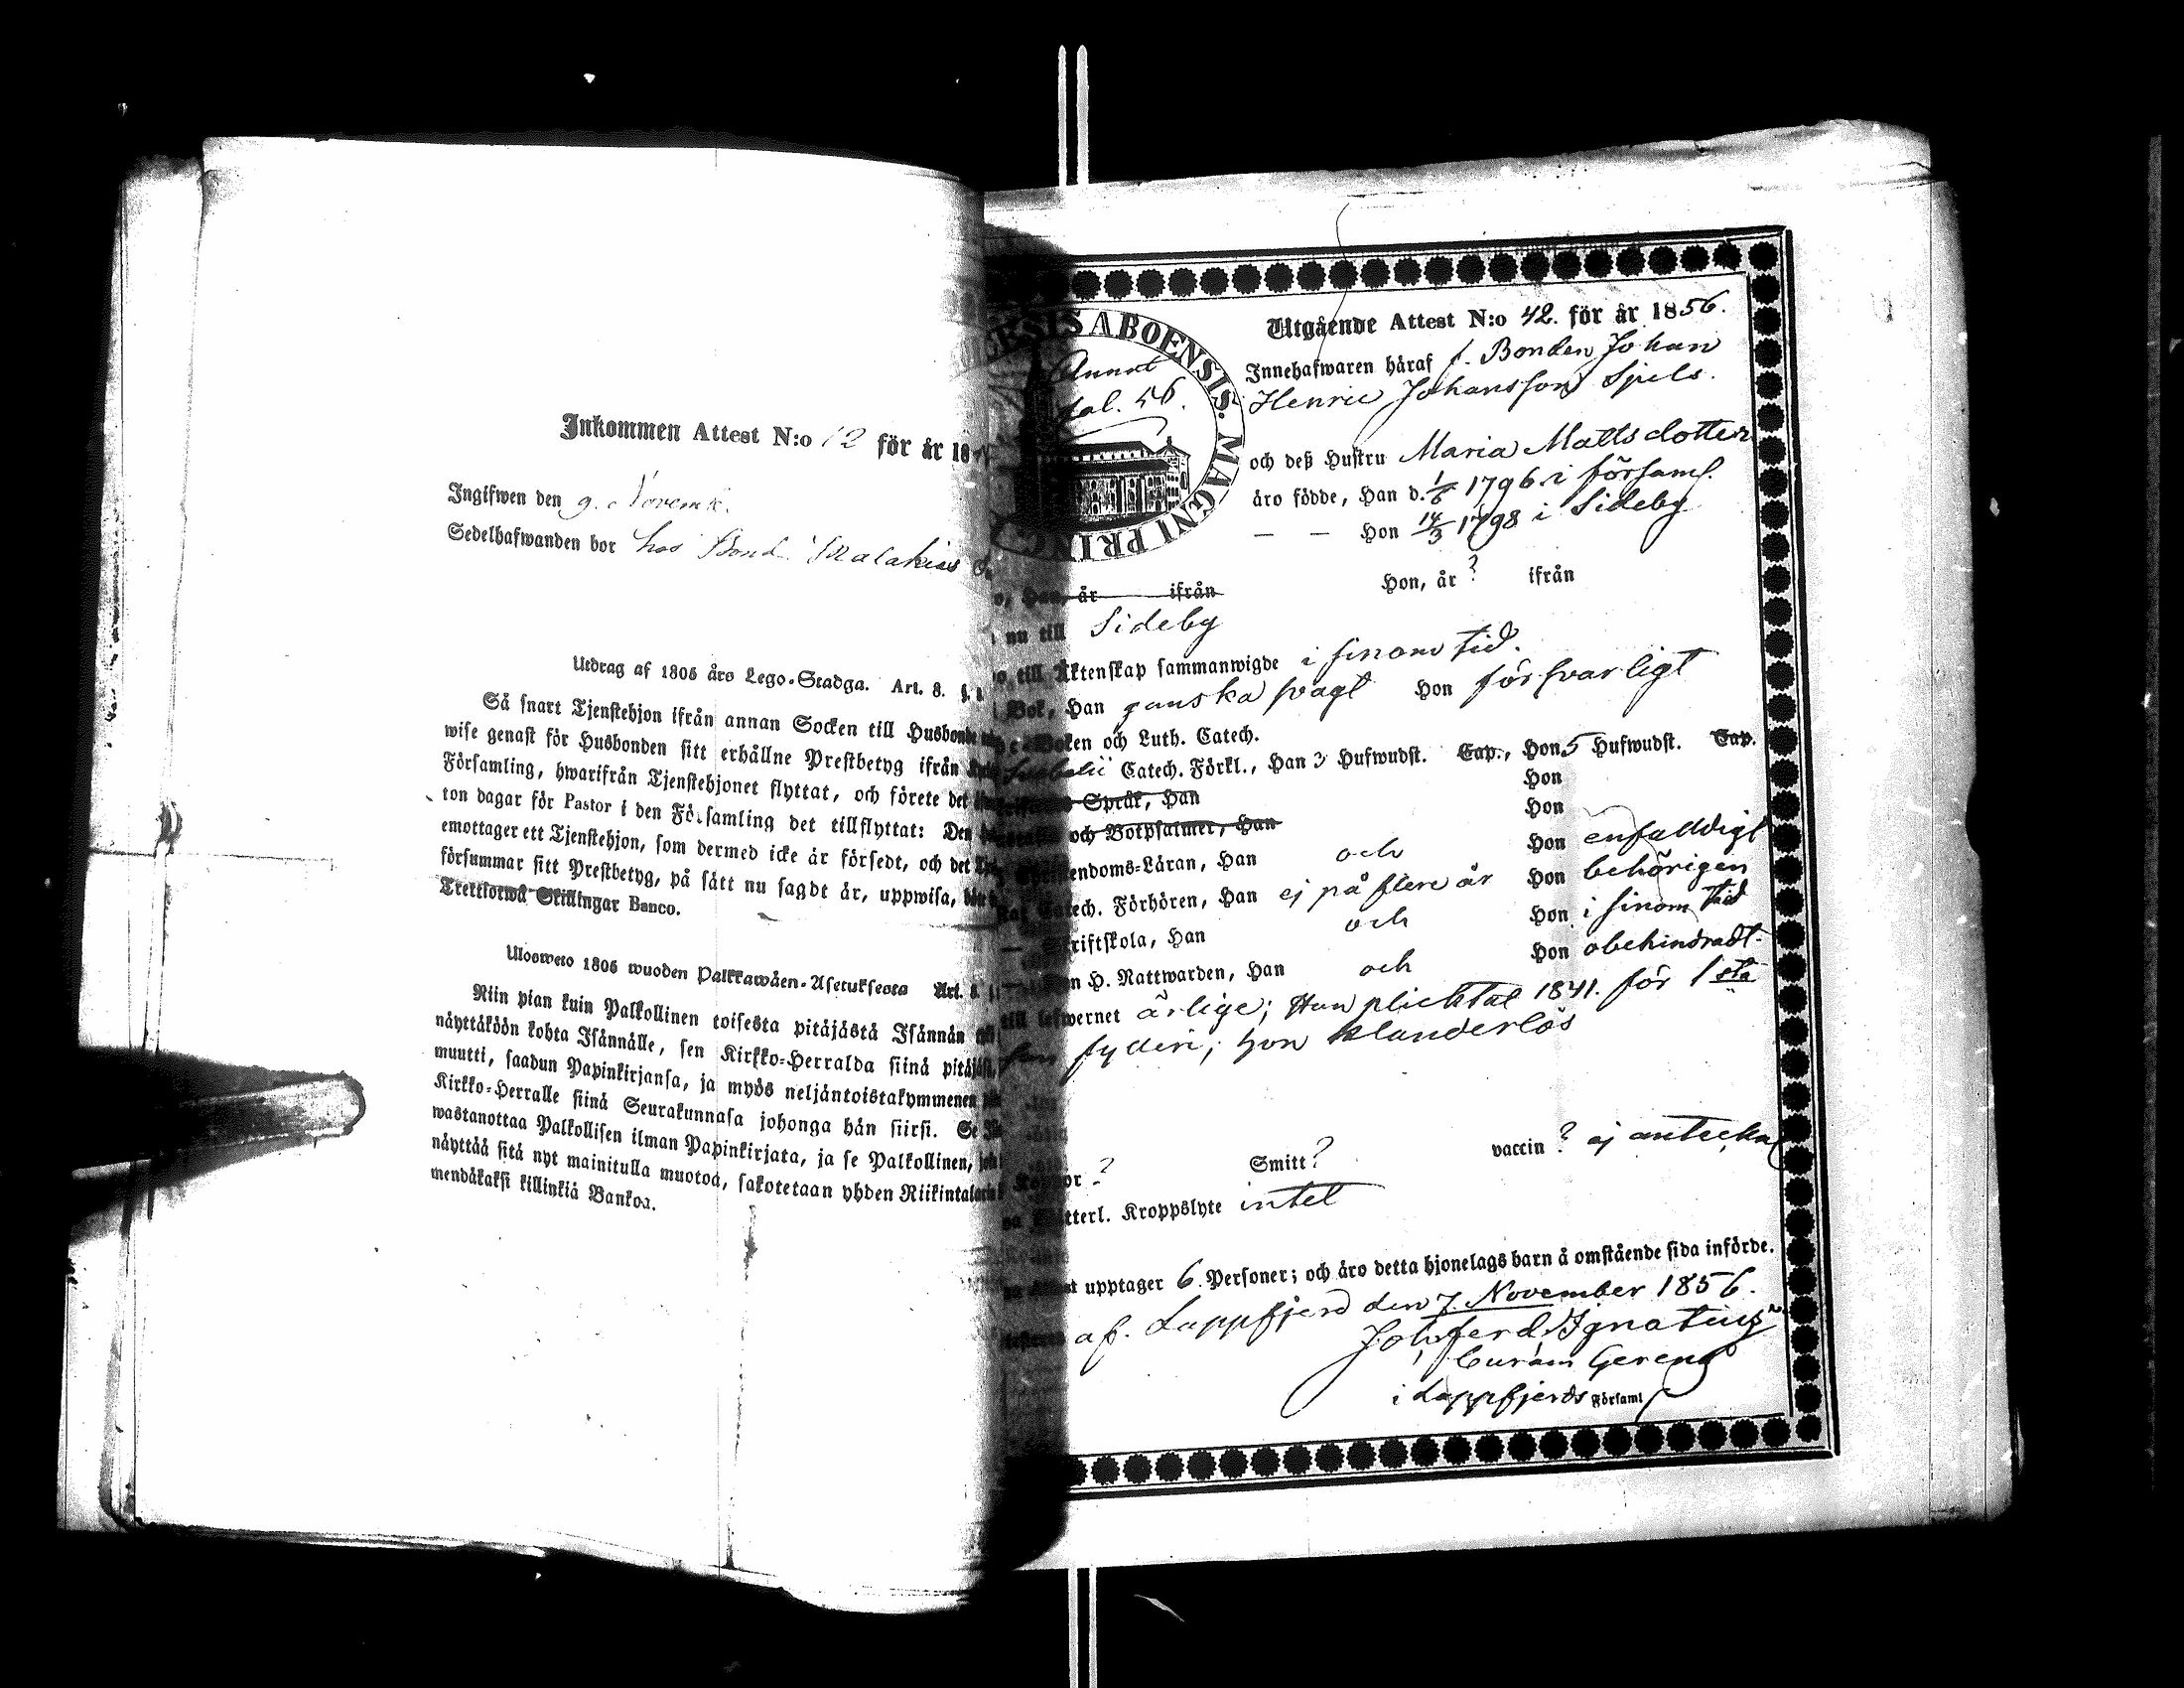 Inkommen Attest N:o 12 för år 18
Ingifwen den 9. Novemb.
Sedelhafwanden bor hos Bond. Malakias
Utdrag af 1805 års Lego-Stadga. Art. 8. §. 1
Så snart Tjenstehjon ifrån annan Socken till Husbonde
wise genast för Husbonden sitt erhållne Prestbetyg ifrån
Församling, hwarifrån Tjenstehjonet flyttat, och förete det
ton dagar för Pastor i den Församling det tillflyttat: Den
emottager ett Tjenstehjon, som dermed icke är försedt, och det
försummar sitt Prestbetyg, på sätt nu sagdt är, uppwisa,
Trettiotwå Skillingar Banco.
Uloswето 1805 wuoden Palkkawäen-Asetuksesta Art. 8.
Niin pian kuin Palkollinen toisesta pitäjästä Isännän
näyttäköön kohta Isännälle, sen Kirkko-Herralda siinä pitäjäs,
muutti, saadun Papinkirjansa, ja myös neljäntoistakymmenen
Kirkko-Herralle siinä Seurakunnasa johonga hän siirsi. Se
wastanottaa Palkollisen ilman Papinkirjata, ja se Palkollinen,
näyttää sitä nyt mainitulla muotoa, sakotetaan yhden Riikintalarin
mendäkaksi killinkiä Bankoa.
ABOENSIS. MAGNI PRINC
Annot
fol. 56.
Utgående Attest N:o 42. för år 1856.
Innehafwaren häraf f. Bonden Johan
Henric Johansson Spels.
och deß Hustru Maria Mattsdotter
äro födde, Han d. 1/6 1796 i församl.
— — Hon 14/3 1798 i Sideby
Han, år ifrån Hon, år ? ifrån
nu till Sideby
till Äktenskap sammanwigde i sinom tid.
Bok, Han ganska svagt Hon försvarligt
Boken och Luth. Catech.
Catech. Förkl., Han 3 Hufwudst. Cap., Hon 5 Hufwudst. Cap.
Språk, Han Hon
och Botpsalmer, Han Hon
endoms-Läran, Han och Hon enfaldigt
Catech. Förhören, Han ej på flere år Hon behörigen
— Skriftskola, Han och Hon i sinom tid
H. Nattwarden, Han och Hon obehindradt.
till lefwernet ärlige; Han plicktat 1841. för 1sta
fylleri; hon klanderlös
Koppor ? Smitt ? vaccin ? ej antecknad
Kroppslyte intet
upptager 6 Personer; och äro detta hjonelags barn å omstående sida införde.
af. Lappfjerd den 7. November 1856.
Joh. Ferd. Ignatius
Curam Gerens
i Lappfjerds Församl